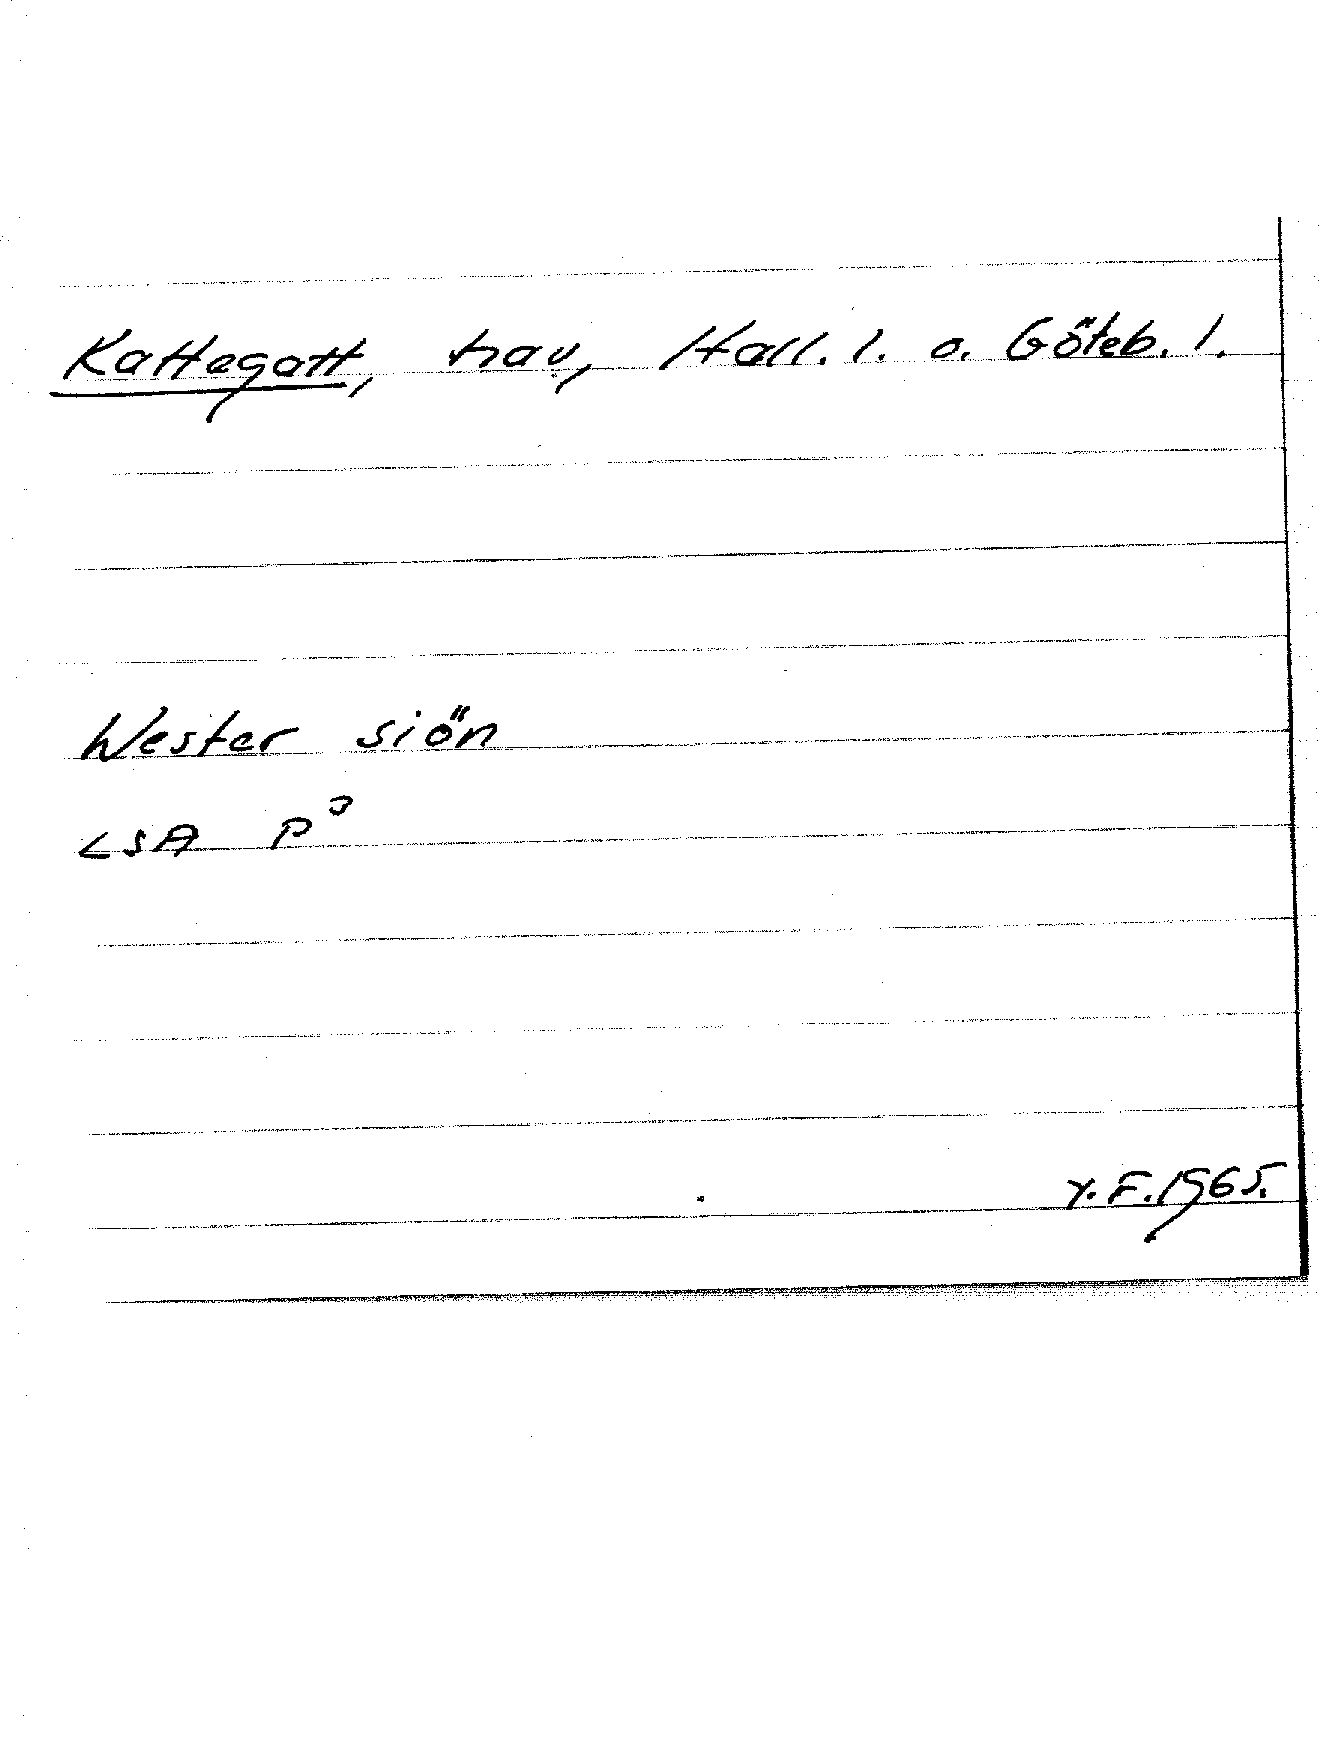 Kattegatt, hav, Hall. l. o. Göteb. l.
Wester siön
LSA P
Y.F. 1965.